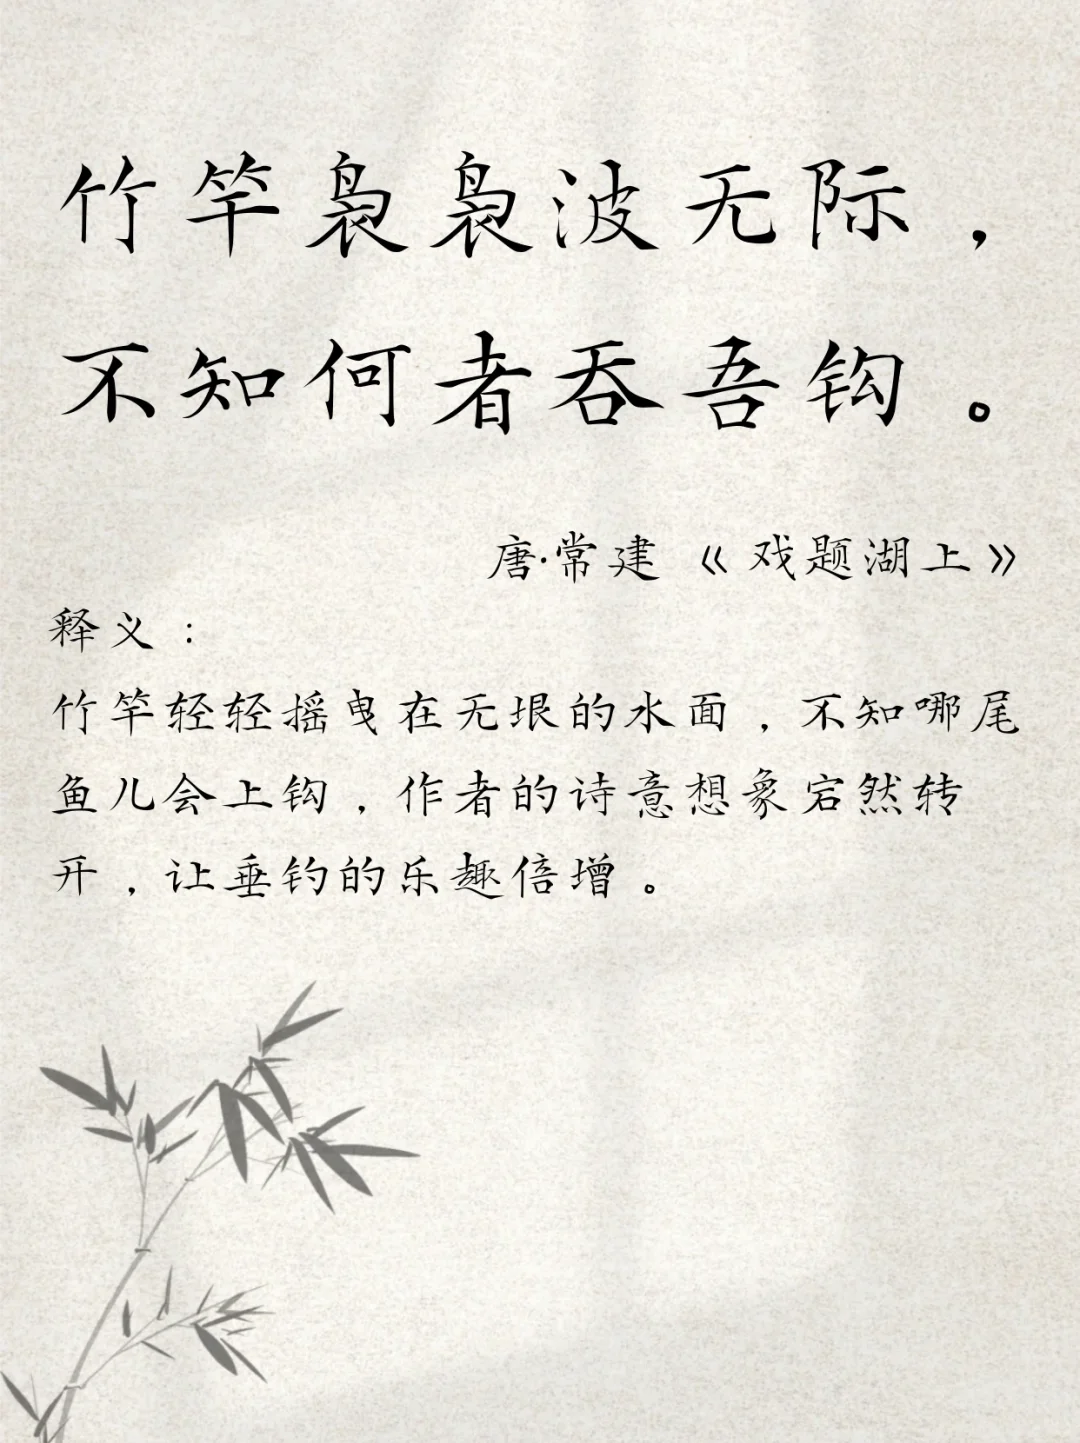 竹竿袅袅波无际，
不知何者吞吾钩。
唐·常建《戏题湖上》
释义：
竹竿轻轻摇曳在无垠的水面，不知哪尾
鱼儿会上钩，作者的诗意想象宕然转
开，让垂钓的乐趣倍增。